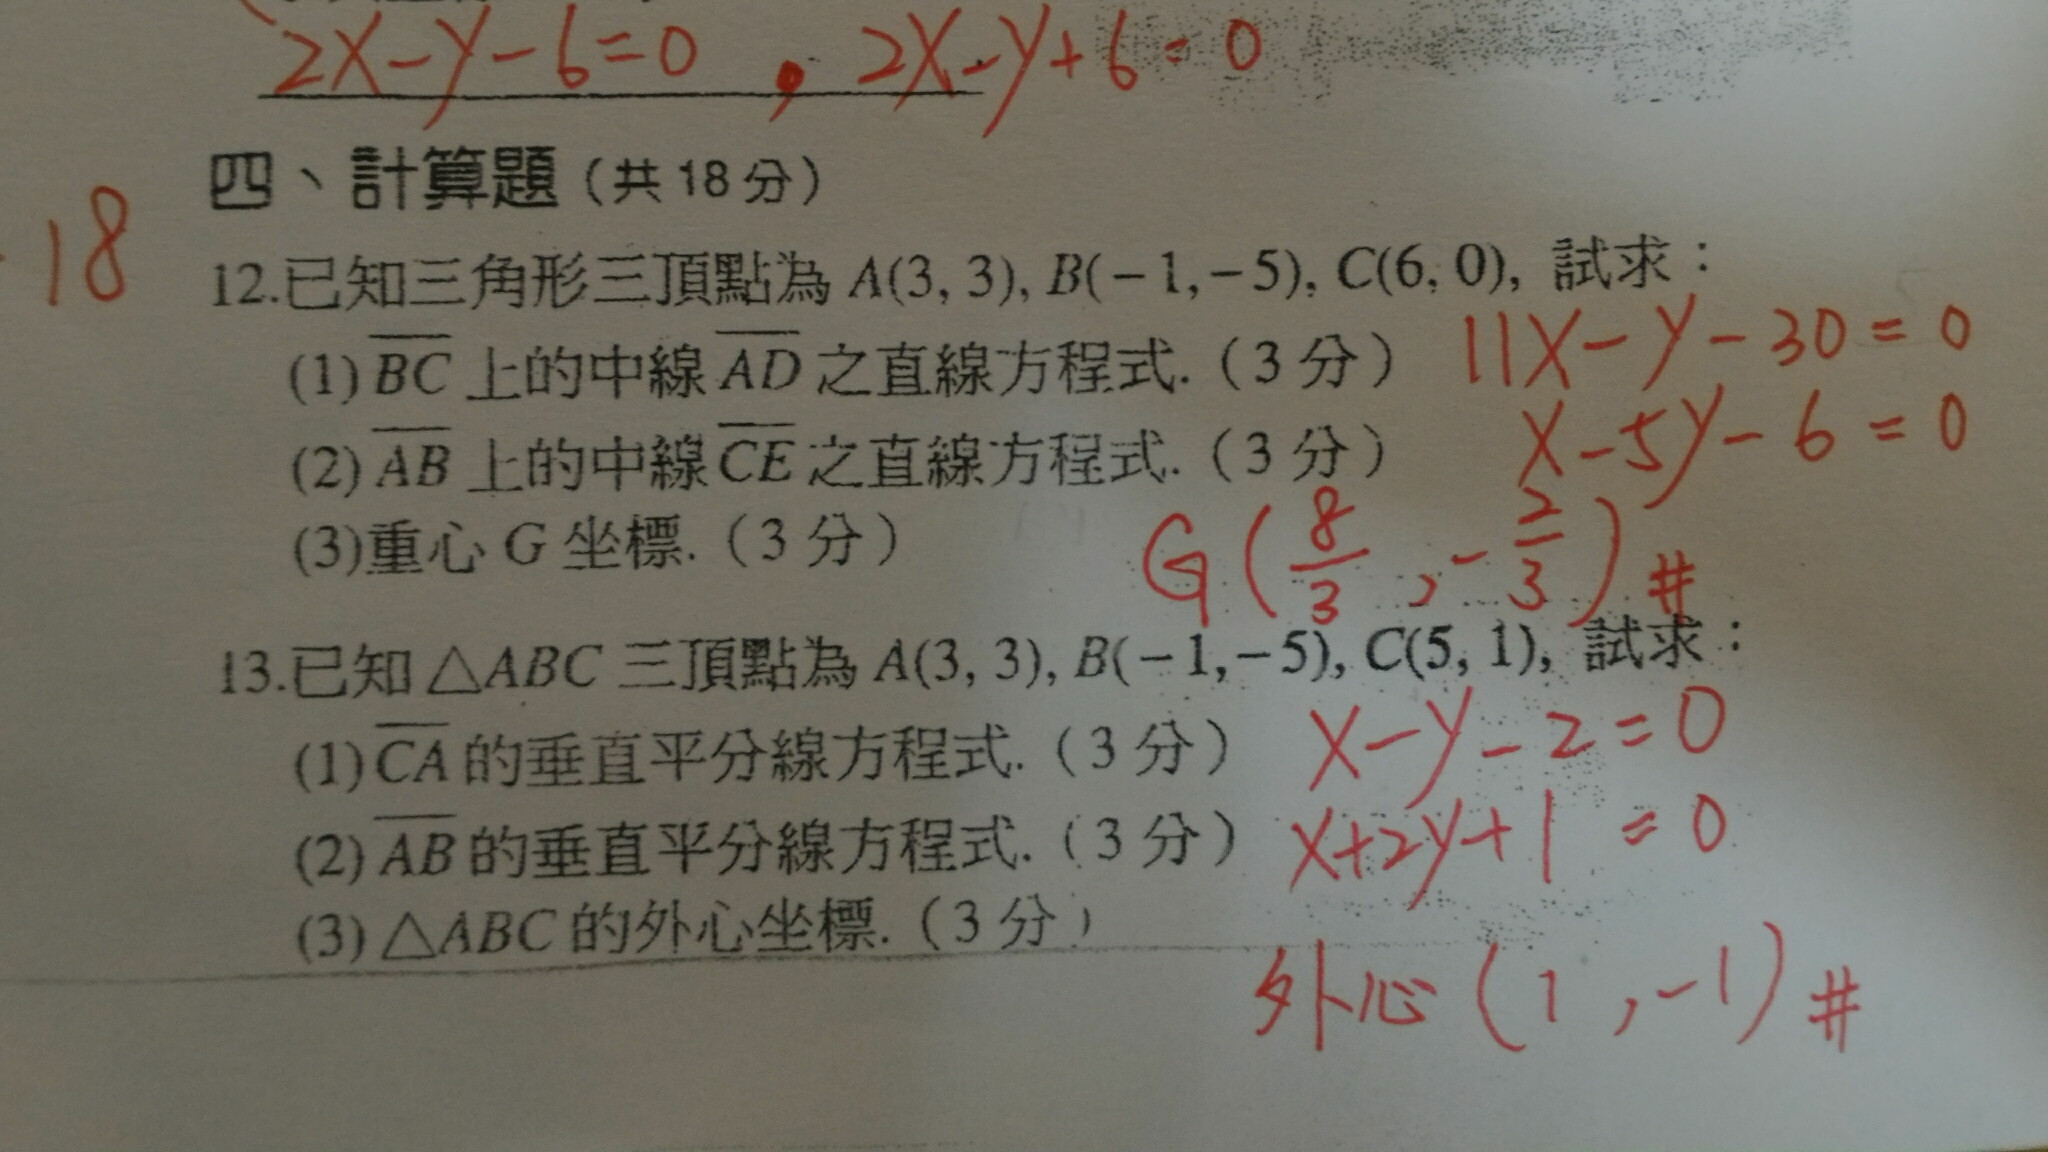 2x-y-6=0 , 2x-y+6=0
四、計算題（共18分）
18
12.已知三角形三頂點為 A(3, 3), B(－1,－5), C(6, 0), 試求：
(1) BC 上的中線 AD 之直線方程式.（3分） 11x-y-30=0
(2) AB 上的中線 CE 之直線方程式.（3分） x-5y-6=0
(3)重心 G 坐標.（3分） G(8/3, -2/3)#
13.已知△ABC 三頂點為 A(3, 3), B(－1,－5), C(5, 1), 試求：
(1) CA 的垂直平分線方程式.（3分） x-y-2=0
(2) AB 的垂直平分線方程式.（3分） x+2y+1=0
(3) △ABC 的外心坐標.（3分）
外心(1,-1)#